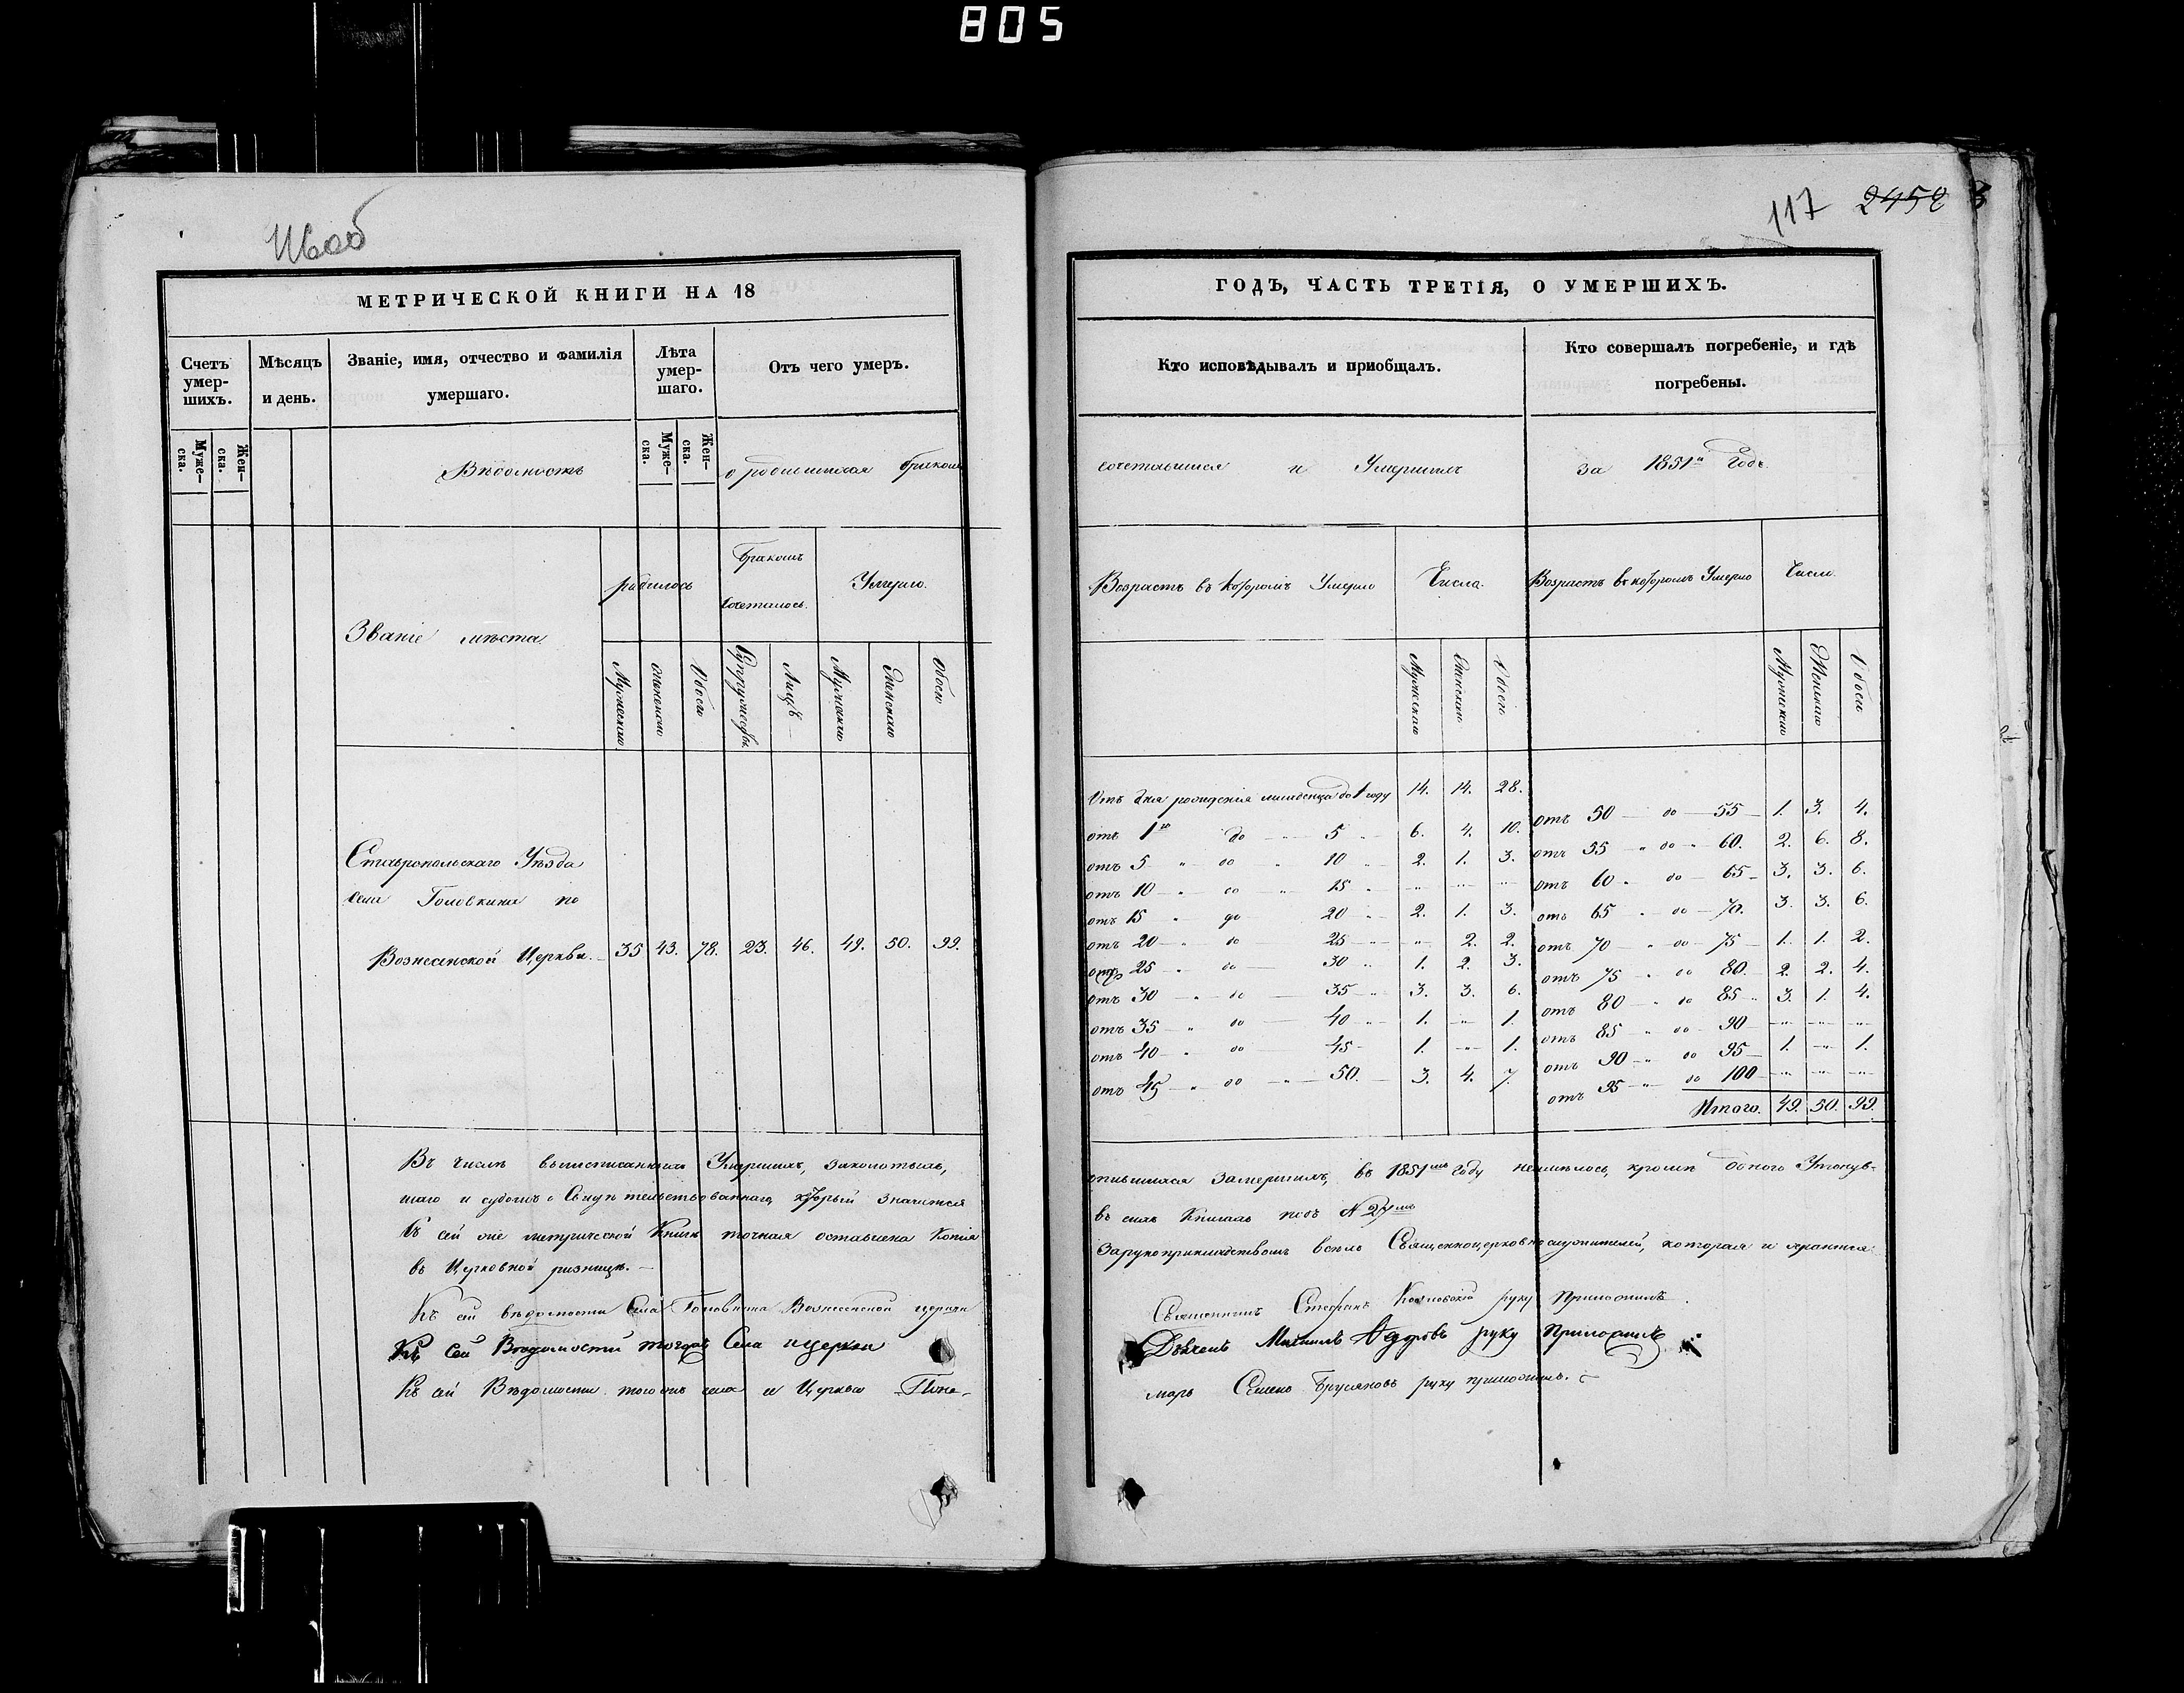 805
116об
117 2452
МЕТРИЧЕСКОЙ КНИГИ НА 18
Счетъ умер-шихъ.
Мѣсяцъ и день.
Званіе, имя, отчество и фамилія умершаго.
Лѣта умер-шаго.
Отъ чего умеръ.
Муже-ска.
Жен-ска.
Муже-ска.
Жен-ска.
Вѣдомость о родившихся бракомъ
Званіе мѣста
родилось
Бракомъ Сочеталось.
Умерло.
Мужеского
женского
Обоего
Супружествъ
Лицъ
Мужеского
Женского
Обоего
Ставропольскаго Уѣзда
села Головкина по
Вознесенской Церкви. 35 43. 78. 23. 46. 49. 50. 99.
Въ числѣ вышеписанныхъ Умершихъ, заколотыхъ,
шаго и судомъ Свидѣтельствованнаго, который значится
Къ сей же метрической Книгѣ точная оставлена Копія
въ Церковной ризницѣ.
Къ сей вѣдомости Села Головкина Вознесенской церкви
Къ сей Вѣдомости тогожъ Села и церкви
Къ сей Вѣдомости тогожъ села и Церкви Поно-
ГОДЪ, ЧАСТЬ ТРЕТІЯ, О УМЕРШИХЪ.
Кто исповѣдывалъ и приобщалъ.
Кто совершалъ погребеніе, и гдѣ погребены.
сочетавшихся и Умершихъ за 1851й Годъ.
Возрастъ въ которомъ Умерло
Числа.
Возрастъ въ которомъ Умерло
Число.
Мужескаго
Женскаго
Обоего
Мужескаго
Женскаго
Обоего
Отъ дня рожденія младенца до 1 году 14. 14. 28.
отъ 1го до 5 6. 4. 10.
отъ 5 до 10 2. 1. 3.
отъ 10 до 15 „ „ „
отъ 15 до 20 2. 1. 3.
отъ 20 до 25 „ 2. 2.
отъ 25 до 30 1. 2. 3.
отъ 30 до 35 3. 3. 6.
отъ 35 до 40 1. „ 1.
отъ 40 до 45 1. „ 1.
отъ 45 до 50. 3. 4. 7.
отъ 50 до 55 1. 3. 4.
отъ 55 до 60. 2. 6. 8.
отъ 60 до 65 3. 3. 6.
отъ 65 до 70. 3. 3. 6.
отъ 70 до 75 1. 1. 2.
отъ 75 до 80. 2. 2. 4.
отъ 80 до 85 3. 1. 4.
отъ 85 до 90 „ „ „
отъ 90 до 95 1. „ 1.
отъ 95 до 100 „ „ „
Итого. 49. 50. 99.
опившихся замерзшихъ, въ 1851мъ Году неимѣлось, кромѣ одного Утонув-
въ сихъ Книгахъ подъ №
Зарукоприкладствомъ всѣхъ Священноцерковнослужителей, которая и хранится
Священникъ Стефанъ руку Приложилъ.
Дьячекъ Михаилъ Ѳедоровъ руку Приложилъ
марь Семенъ Брусяновъ руку приложилъ.